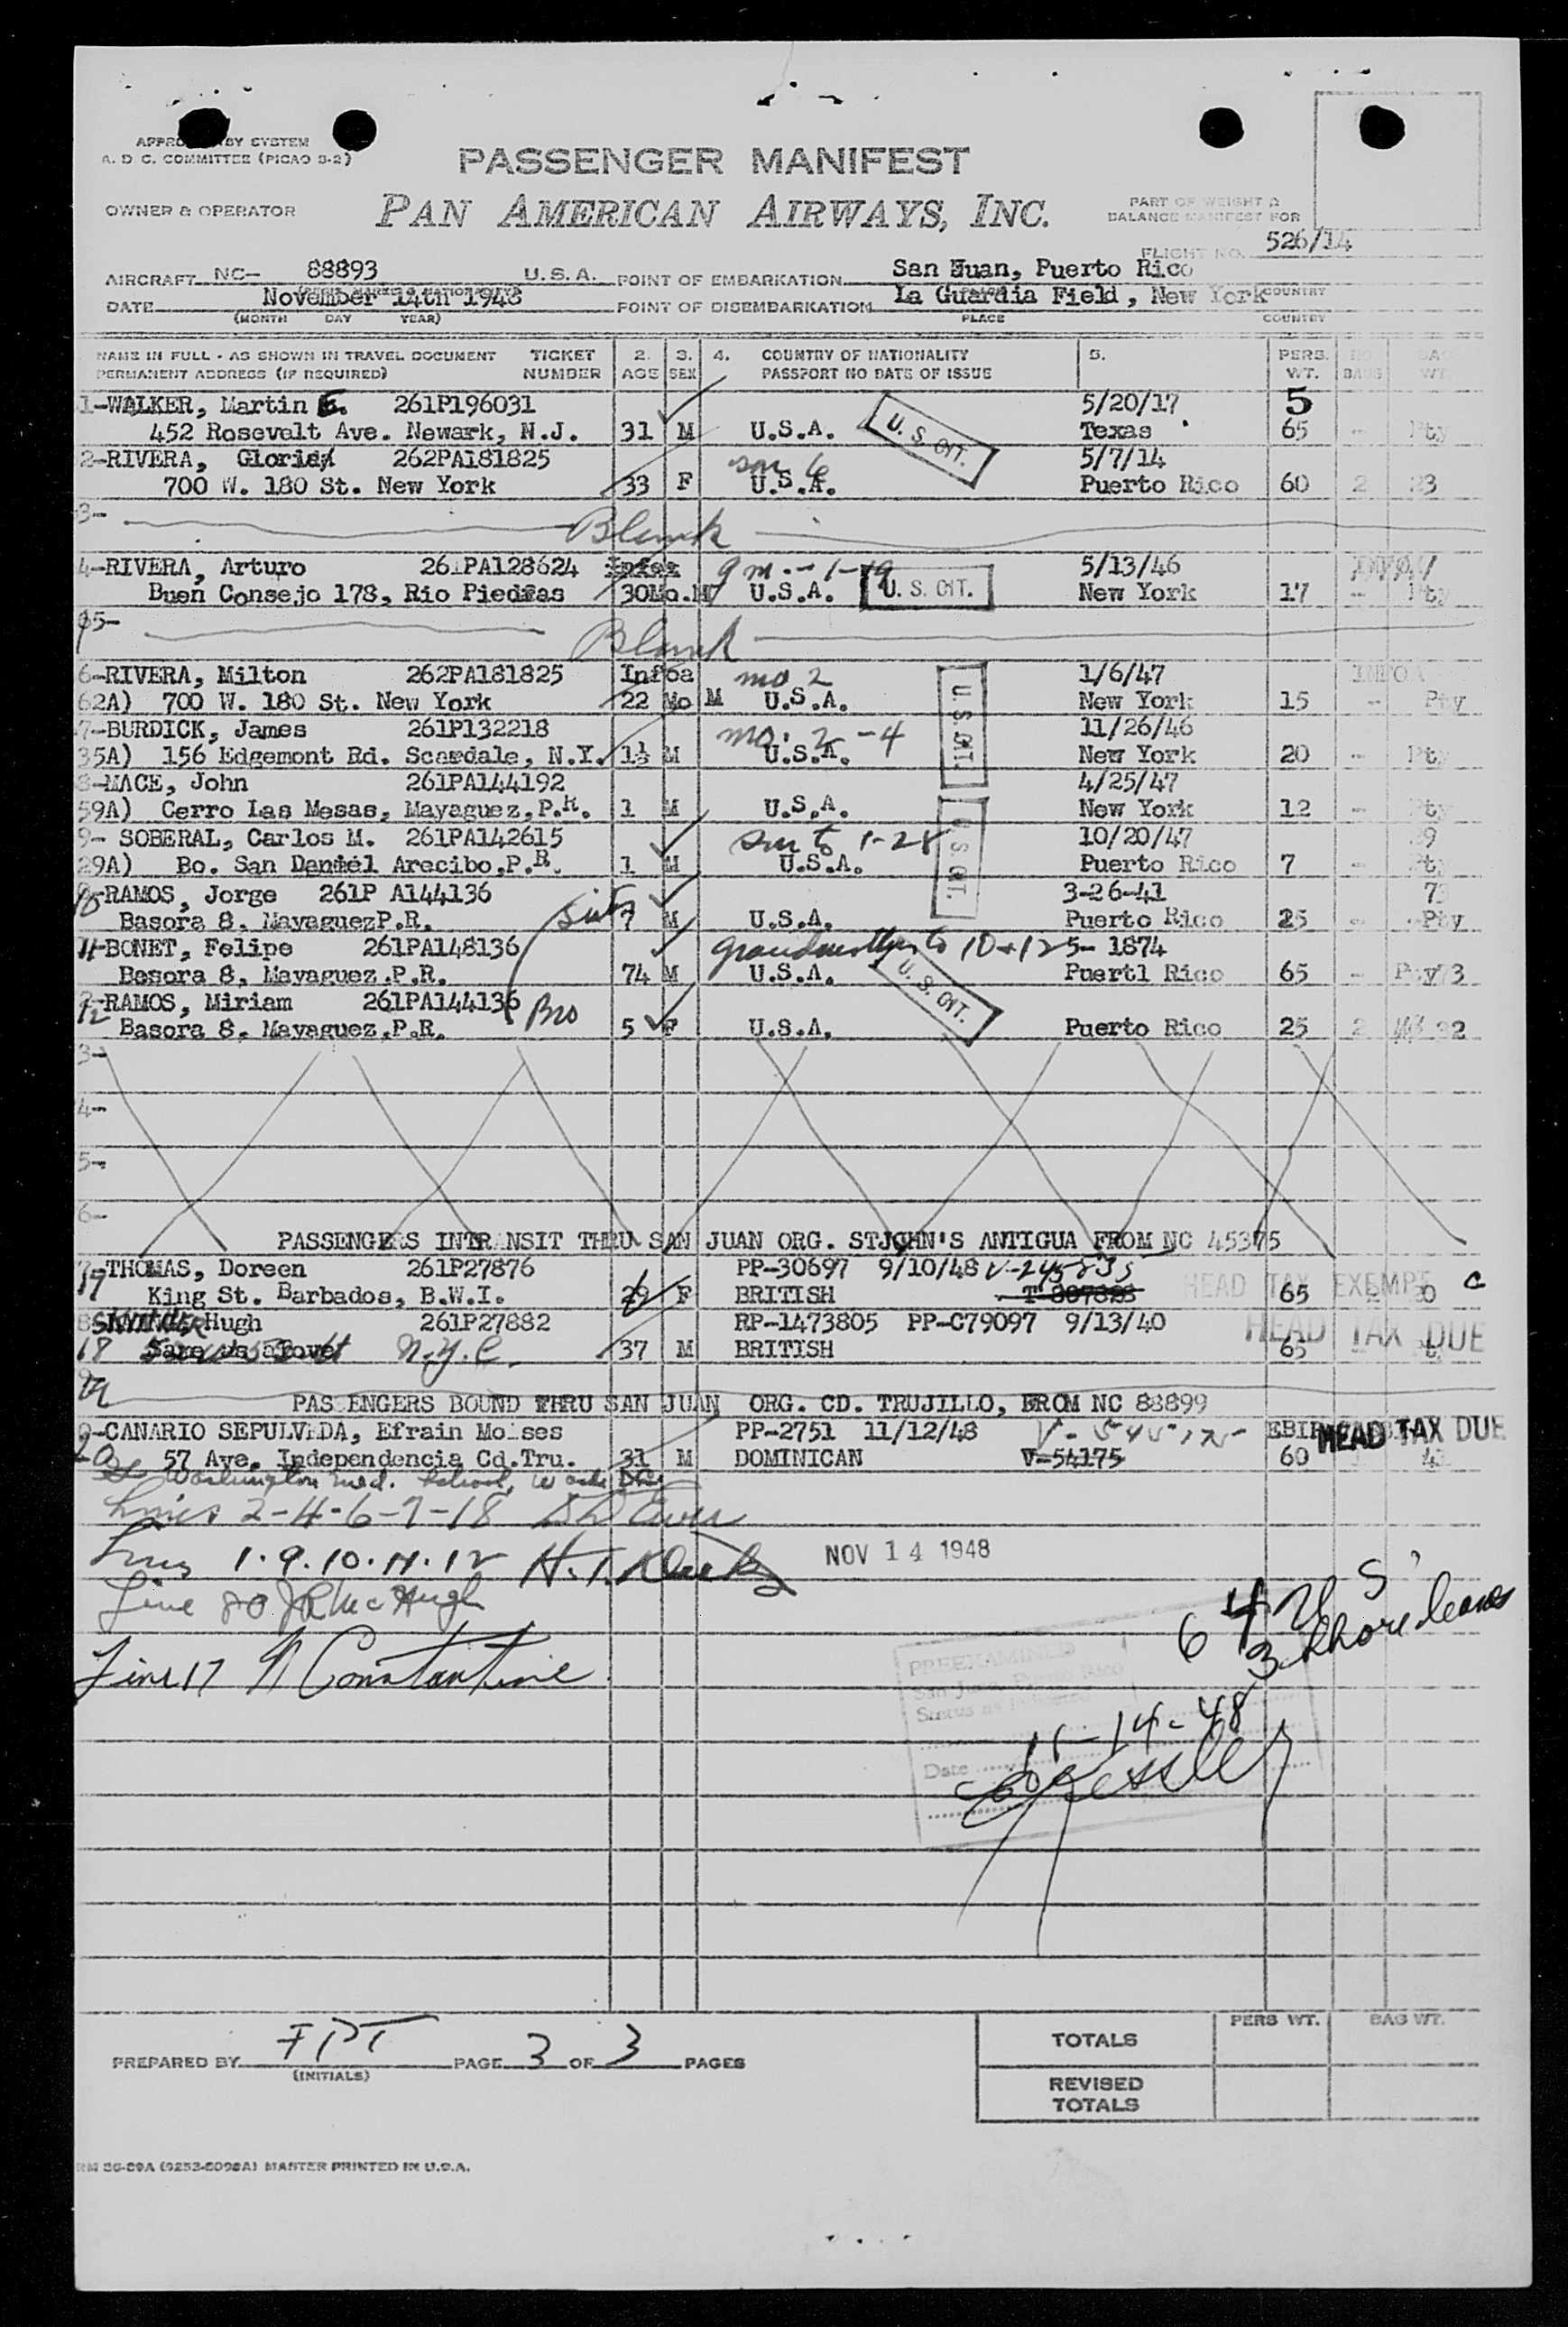 APPROVED BY SYSTEM
A. D. C. COMMITTEE (PICAO 3-2)
PASSENGER MANIFEST
OWNER & OPERATOR
PAN AMERICAN AIRWAYS, INC.
PART OF WEIGHT &
BALANCE MANIFEST FOR
FLIGHT NO. 526/14
AIRCRAFT NC- 88893 U.S.A. POINT OF EMBARKATION San Huan, Puerto Rico
DATE November 14th 1948 POINT OF DISEMBARKATION La Guardia Field, New York COUNTRY
(MONTH DAY YEAR) PLACE COUNTRY
NAME IN FULL - AS SHOWN IN TRAVEL DOCUMENT TICKET 2. 3. 4. COUNTRY OF NATIONALITY 5. PERS.
PERMANENT ADDRESS (IF REQUIRED) NUMBER AGE SEX PASSPORT NO DATE OF ISSUE WT. BAGS WT.
1-WALKER, Martin E. 261P196031 5/20/17 5
452 Rosevelt Ave. Newark, N.J. 31 M U.S.A. U. S. CIT. Texas 65 - Pty
2-RIVERA, Gloria 262PA181825 5/7/14
700 W. 180 St. New York 33 F U.S.A. Puerto Rico 60 2 23
3- Blank
4-RIVERA, Arturo 261PA128624 Infoa 5/13/46
Buen Consejo 178, Rio Piedras 30Mo. M U.S.A. U. S. CIT. New York 17 - Pty
5- Blank
6-RIVERA, Milton 262PA181825 Infoa mo 2 1/6/47 INFOA
62A) 700 W. 180 St. New York 22 Mo M U.S.A. U. S. CIT. New York 15 - Pty
7-BURDICK, James 261P132218 mo. 2-4 11/26/46
35A) 156 Edgemont Rd. Scarsdale, N.Y. 1½ M U.S.A. New York 20 - Pty
8-MACE, John 261PA144192 4/25/47
59A) Cerro Las Mesas, Mayaguez,P.R. 1 M U.S.A. New York 12 - Pty
9- SOBERAL, Carlos M. 261PA142615 son to 1-28 10/20/47
29A) Bo. San Daniel Arecibo,P.R. 1 M U.S.A. U S CIT. Puerto Rico 7 - Pty
10-RAMOS, Jorge 261P A144136 3-26-41
Basora 8, MayaguezP.R. 7 M U.S.A. Puerto Rico 25 - Pty
11-BONET, Felipe 261PA148136 grandmother to 10+12 5- 1874
Besora 8, Mayaguez,P.R. 74 M U.S.A. U. S. CIT. Puertl Rico 65 -
12-RAMOS, Miriam 261PA144136 Bro
Basora 8, Mayaguez,P.R. 5 F U.S.A. Puerto Rico 25 2
3-
4-
5-
6-
PASSENGERS INTRANSIT THRU SAN JUAN ORG. STJOHN'S ANTIGUA FROM NC 45375
17 THOMAS, Doreen 261P27876 PP-30697 9/10/48 HEAD TAX EXEMPT
King St. Barbados, B.W.I. F BRITISH 65 C
Hugh 261P27882 RP-1473805 PP-C79097 9/13/40 HEAD TAX DUE
18 Same as above N.Y.C. 37 M BRITISH 65
19
PASSENGERS BOUND THRU SAN JUAN ORG. CD. TRUJILLO, FROM NC 88899
20 CANARIO SEPULVEDA, Efrain Moises PP-2751 11/12/48 HEAD TAX DUE
57 Ave. Independencia Cd.Tru. 31 M DOMINICAN V-54175 60
Washington Med. School, Wash D.C.
Lines 2-4-6-7-18
Lines 1.9.10.11.12
NOV 14 1948
Line 20 J R McHugh
3 Shore leaves
Line 17 N Constantine
PREEXAMINED
San Juan, Puerto Rico
Status as indicated
11-14-48
Date
PREPARED BY FPT PAGE 3 OF 3 PAGES
(INITIALS)
PERS WT. BAG WT.
TOTALS
REVISED
TOTALS
MASTER PRINTED IN U.S.A.